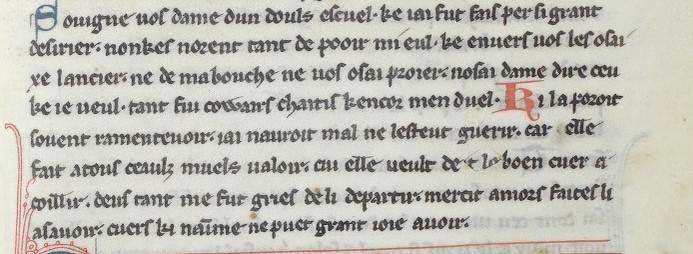 Souigne uos dame dun douls escuel · ke iai fut fais per si grant
desirier · nonkes norent tant de pooir mi eul · ke enuers uos les osai
xe lancier · ne de ma bouche ne uos osai proier · nosai dame dire ceu
ke ie ueul · tant fui cowars chaitis kencor men duel · Ki la poroit
souent ramenteuoir · iai nauroit mal ne lesteut guerir · car elle
fait a tous ceaulz muels ualoir · cui elle ueult de boen cuer a
coillir · deus tant me fut gries de li departir · mercit amors faites li
asauoir · cuers ki naime ne puet grant ioie auoir ·